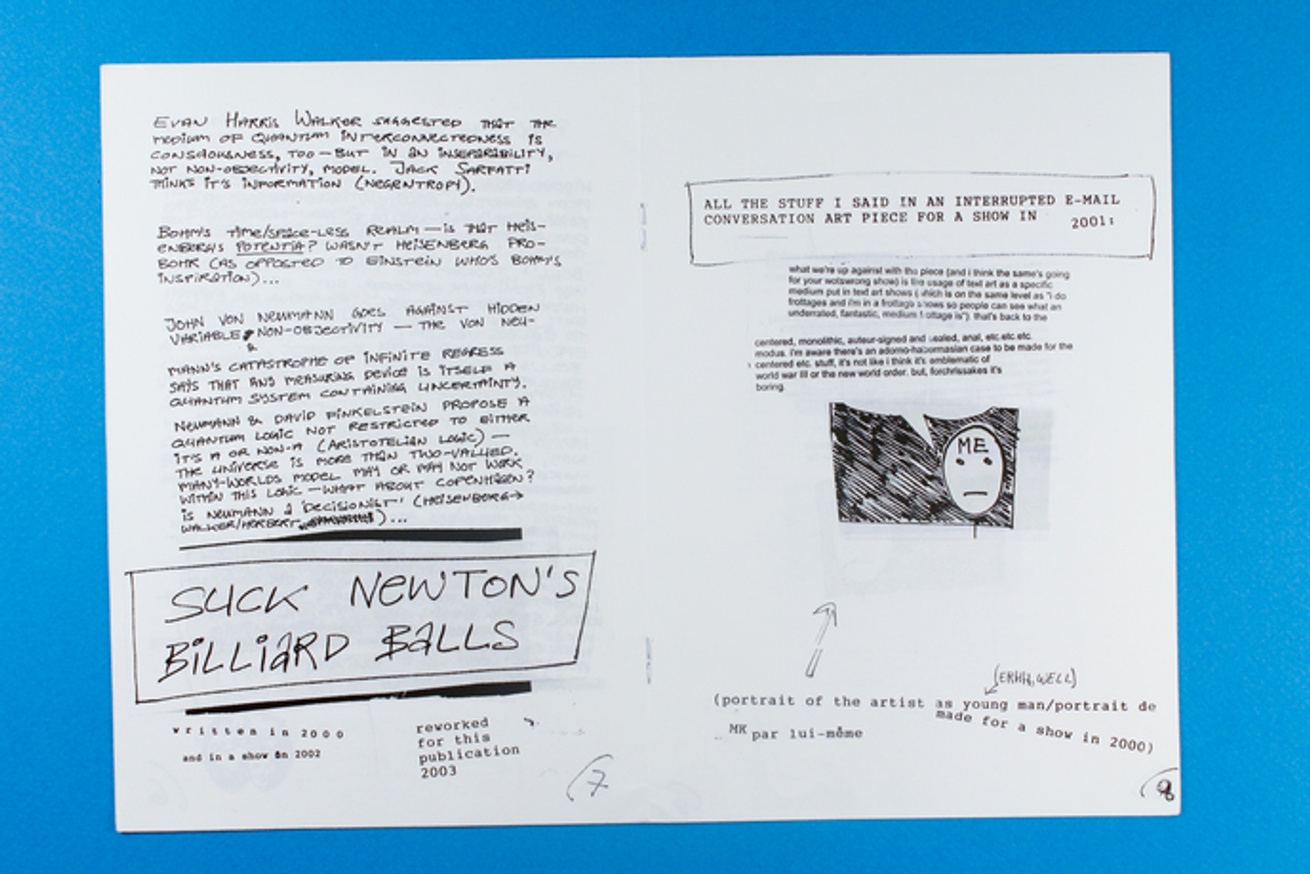 EVAN HARRIS WALKER SUGGESTED THAT THE
MEDIUM OF QUANTUM INTERCONNECTEDNESS IS
CONSCIOUSNESS, TOO — BUT IN AN INSEPARABILITY,
NOT NON-OBJECTIVITY, MODEL. JACK SARFATTI
THINKS IT'S INFORMATION (NEGENTROPY).
BOHM'S TIME/SPACE-LESS REALM — IS THAT HEIS-
ENBERG'S POTENTIA? WASN'T HEISENBERG PRO-
BOHR (AS OPPOSTED TO EINSTEIN WHO'S BOHM'S
INSPIRATION)...
JOHN VON NEUMANN GOES AGAINST HIDDEN
VARIABLE & NON-OBJECTIVITY — THE VON NEU-
MANN'S CATASTROPHE OF INFINITE REGRESS
SAYS THAT ANY MEASURING DEVICE IS ITSELF A
QUANTUM SYSTEM CONTAINING UNCERTAINTY.
NEUMANN & DAVID FINKELSTEIN PROPOSE A
QUANTUM LOGIC NOT RESTRICTED TO EITHER
IT'S A OR NON-A (ARISTOTELIAN LOGIC) —
THE UNIVERSE IS MORE THAN TWO-VALUED.
MANY-WORLDS MODEL MAY OR MAY NOT WORK
WITHIN THIS LOGIC — WHAT ABOUT COPENHAGEN?
IS NEUMANN A 'DECISIONIST' (HEISENBERG→
WALKER/HERBERT )...
SUCK NEWTON'S
BILLIARD BALLS
written in 2000
and in a show in 2002
reworked
for this
publication
2003
7
ALL THE STUFF I SAID IN AN INTERRUPTED E-MAIL
CONVERSATION ART PIECE FOR A SHOW IN 2001:
what we're up against with this piece (and i think the same's going
for your wotswrong show) is the usage of text art as a specific
medium put in text art shows (which is on the same level as "i do
frottages and i'm in a frottage shows so people can see what an
underrated, fantastic, medium frottage is"). that's back to the
centered, monolithic, auteur-signed and sealed, anal, etc.etc.etc.
modus. i'm aware there's an adorno-habermasian case to be made for the
centered etc. stuff, it's not like i think it's emblematic of
world war III or the new world order. but, forchrissakes it's
boring.
ME
(ERHH, WELL)
(portrait of the artist as young man/portrait de
MK par lui-même
made for a show in 2000)
8